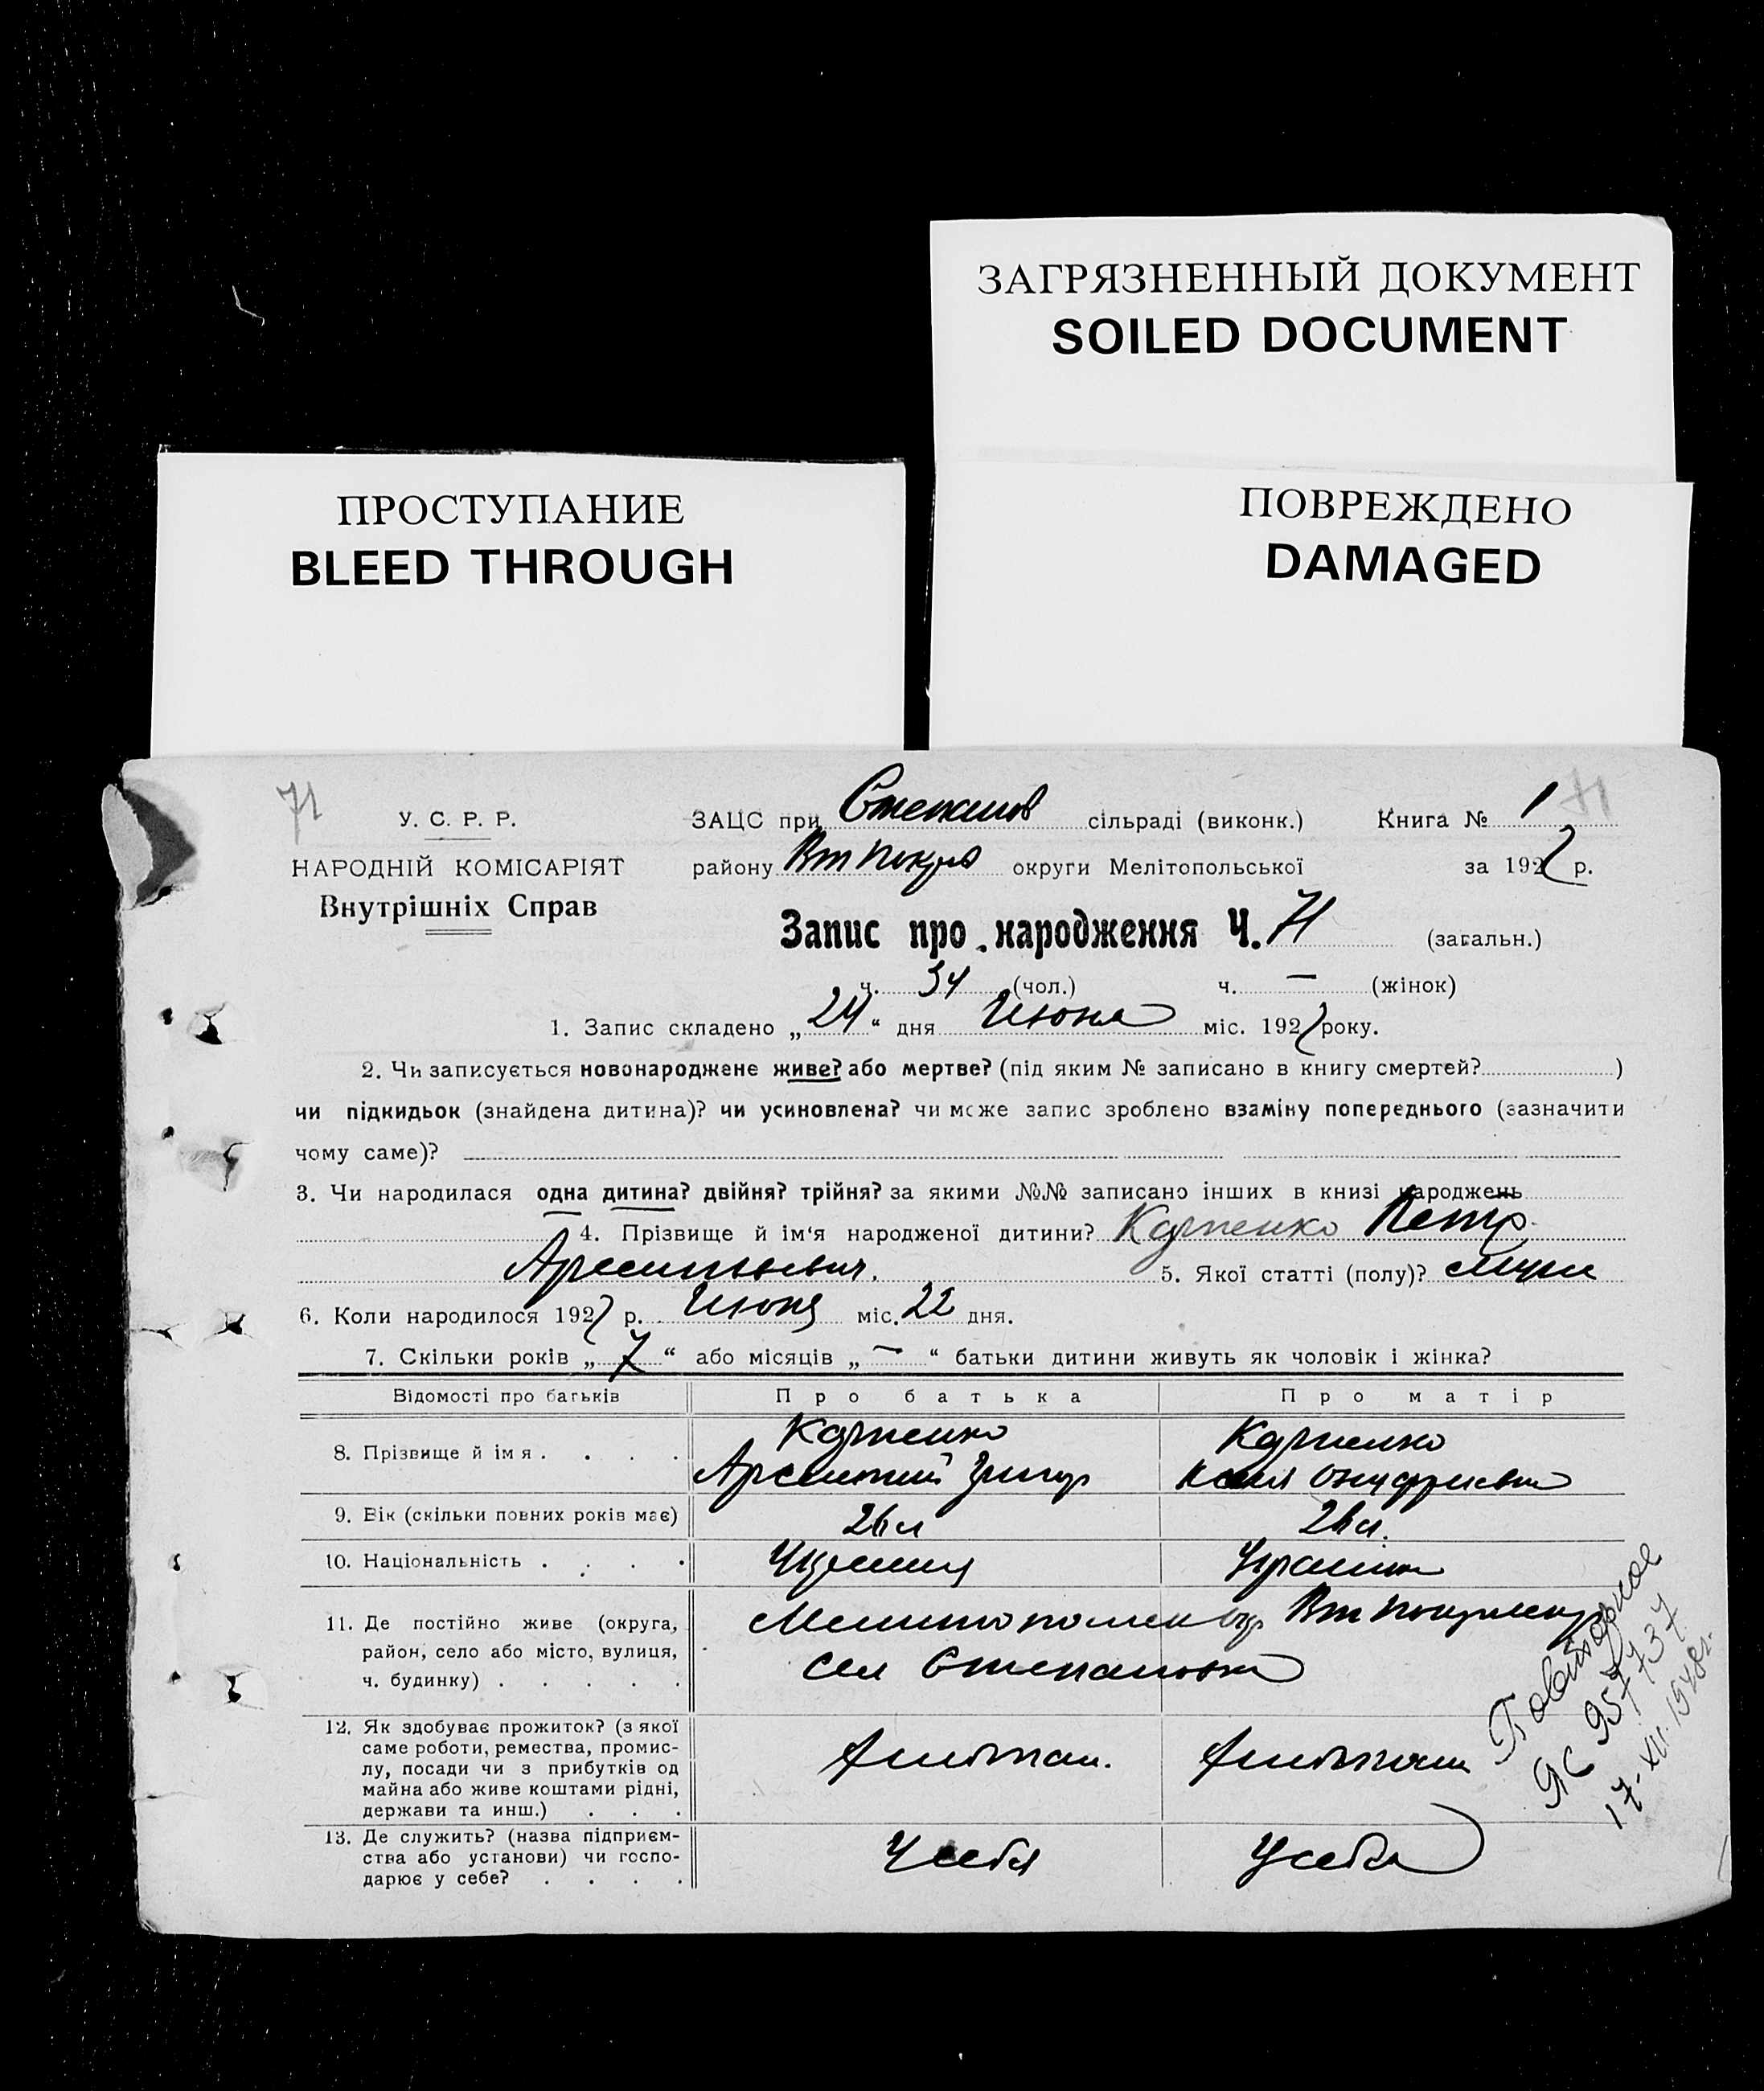 ЗАГРЯЗНЕННЫЙ ДОКУМЕНТ
SOILED DOCUMENT
ПРОСТУПАНИЕ
BLEED THROUGH
ПОВРЕЖДЕНО
DAMAGED
71
У. С. Р. Р.
НАРОДНІЙ КОМІСАРІЯТ
Внутрішніх Справ
ЗАЦС при Степанов сільраді (виконк.) Книга № 1 71
району Вт Покров округи Мелітопольської за 1927 р.
Запис про народження Ч. 71 (загальн.)
ч. 34 (чол.) ч. — (жінок)
1. Запис складено „24“ дня Июня міс. 1927 року.
2. Чи записується новонароджене живе? або мертве? (під яким № записано в книгу смертей? )
чи підкидьок (знайдена дитина)? чи усиновлена? чи може запис зроблено взаміну попереднього (зазначити
чому саме)?
3. Чи народилася одна дитина? двійня? трійня? за якими №№ записано інших в книзі народжень
4. Прізвище й ім‘я народженої дитини? Петр
Арсентьевич. 5. Якої статті (полу)? муж
6. Коли народилося 1927 р. Июня міс. 22 дня.
7. Скільки років „7“ або місяців „—“ батьки дитини живуть як чоловік і жінка?
Відомості про батьків Про батька Про матір
8. Прізвище й імя . . . .
Арсентий Григор
9. Вік (скільки повних років має) 26 л 26 л.
10. Національність . . . .
11. Де постійно живе (округа,
район, село або місто, вулиця,
ч. будинку) . . . . .
Вт Покровск
Сел Степановка
12. Як здобуває прожиток? (з якої
саме роботи, ремества, промис-
лу, посади чи з прибутків од
майна або живе коштами рідні,
держави та инш.) . . .
13. Де служить? (назва підприєм-
ства або установи) чи госпо-
дарює у себе? . . . .
У себя У себя
Повторное
ЯС 957737
17-XII-1948г.